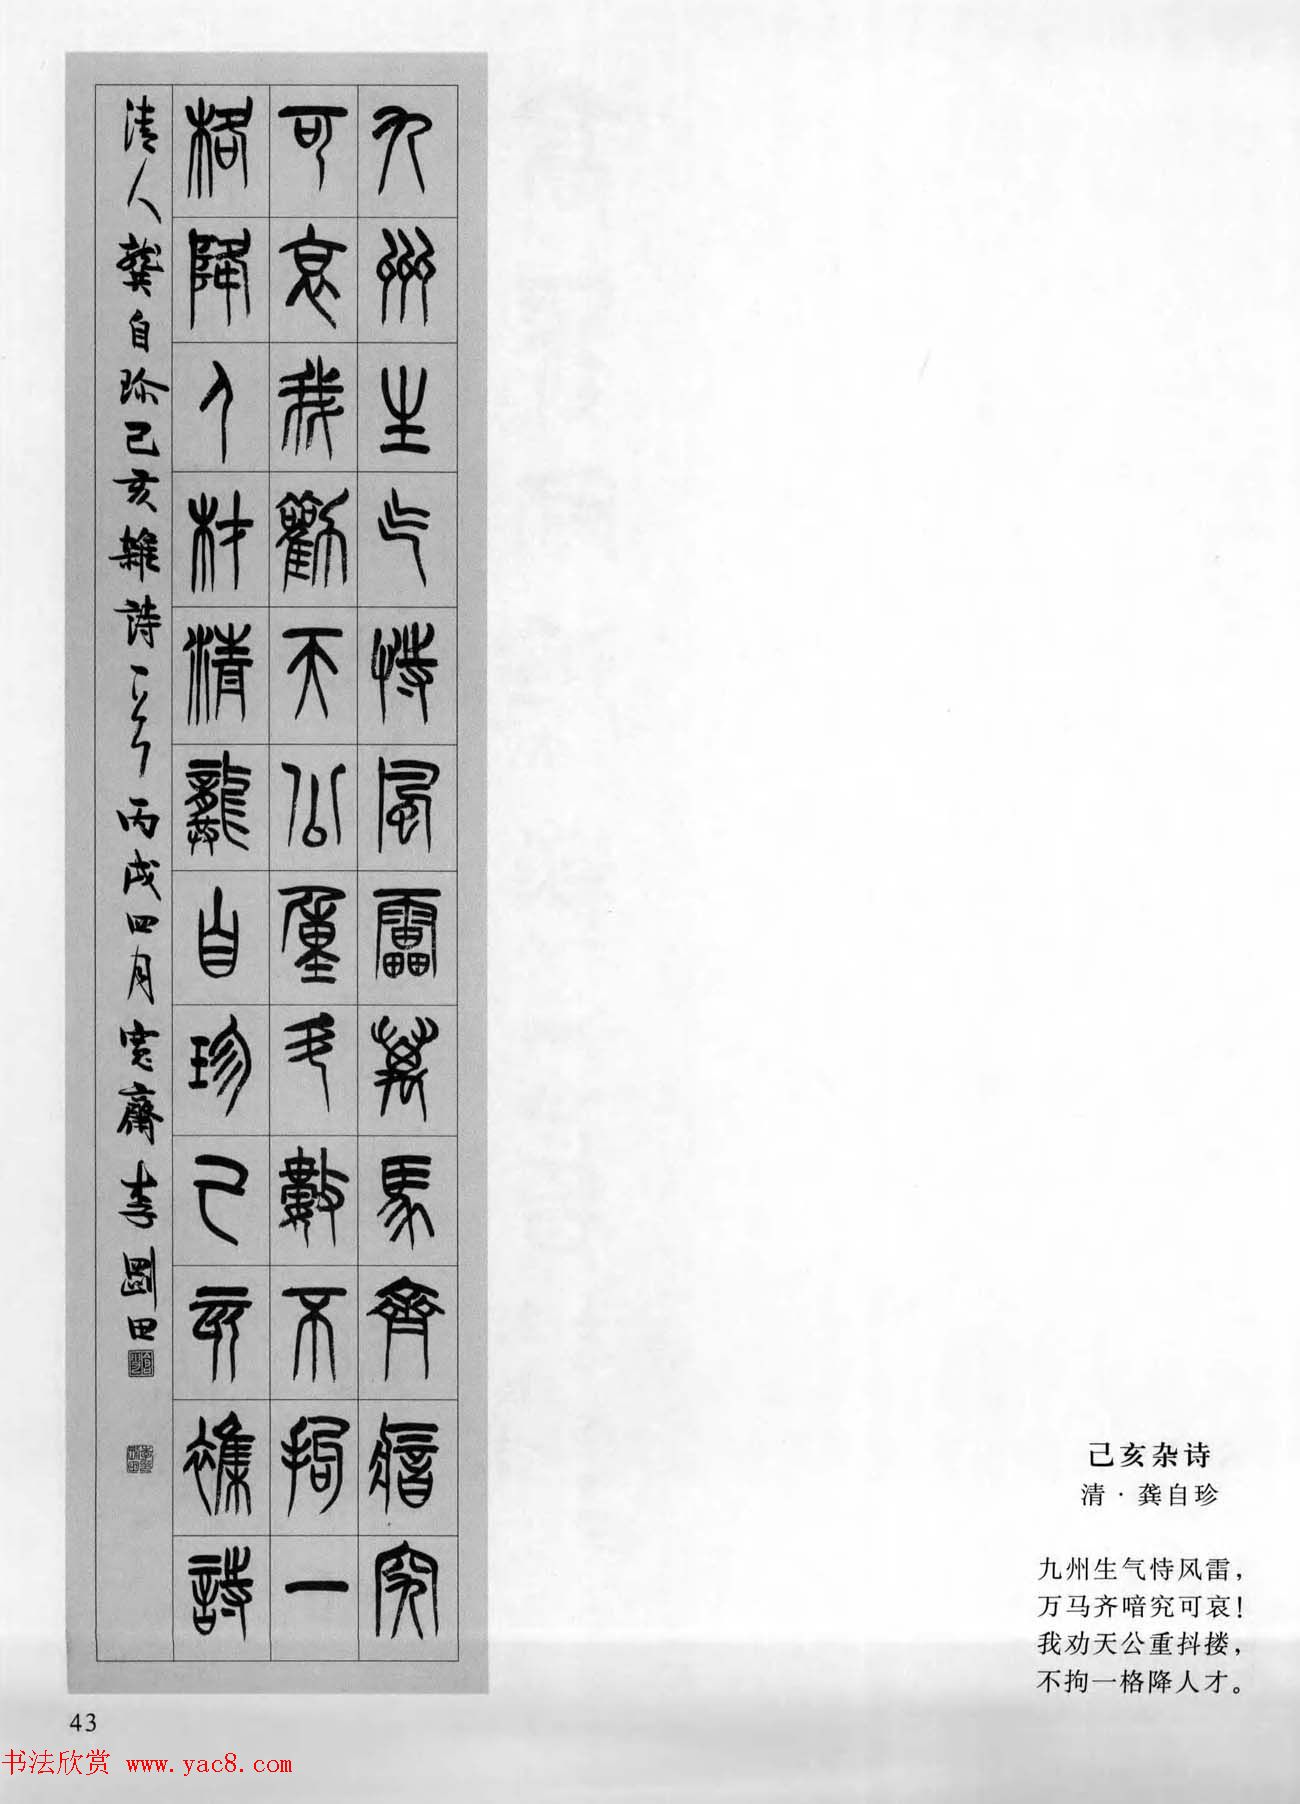 九州生气恃風雷萬馬齊瘖究
可哀我勸天公重斗數不拘一
格降人材清龔自珍己亥雜詩
清人龔自珍己亥雜詩一首丙戌四月寬齋李剛田
己亥杂诗
清·龚自珍
九州生气恃风雷，
万马齐喑究可哀！
我劝天公重抖搂，
不拘一格降人才。
43
书法欣赏 www.yac8.com